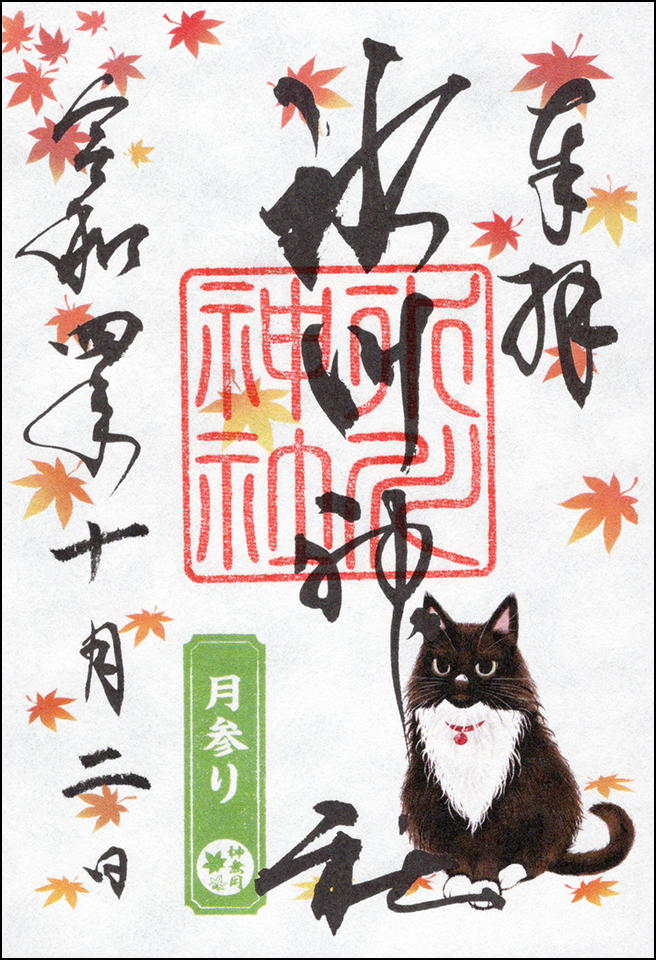 奉拝
氷川神社
氷川神社
月参り
神無月
令和四年十月二日